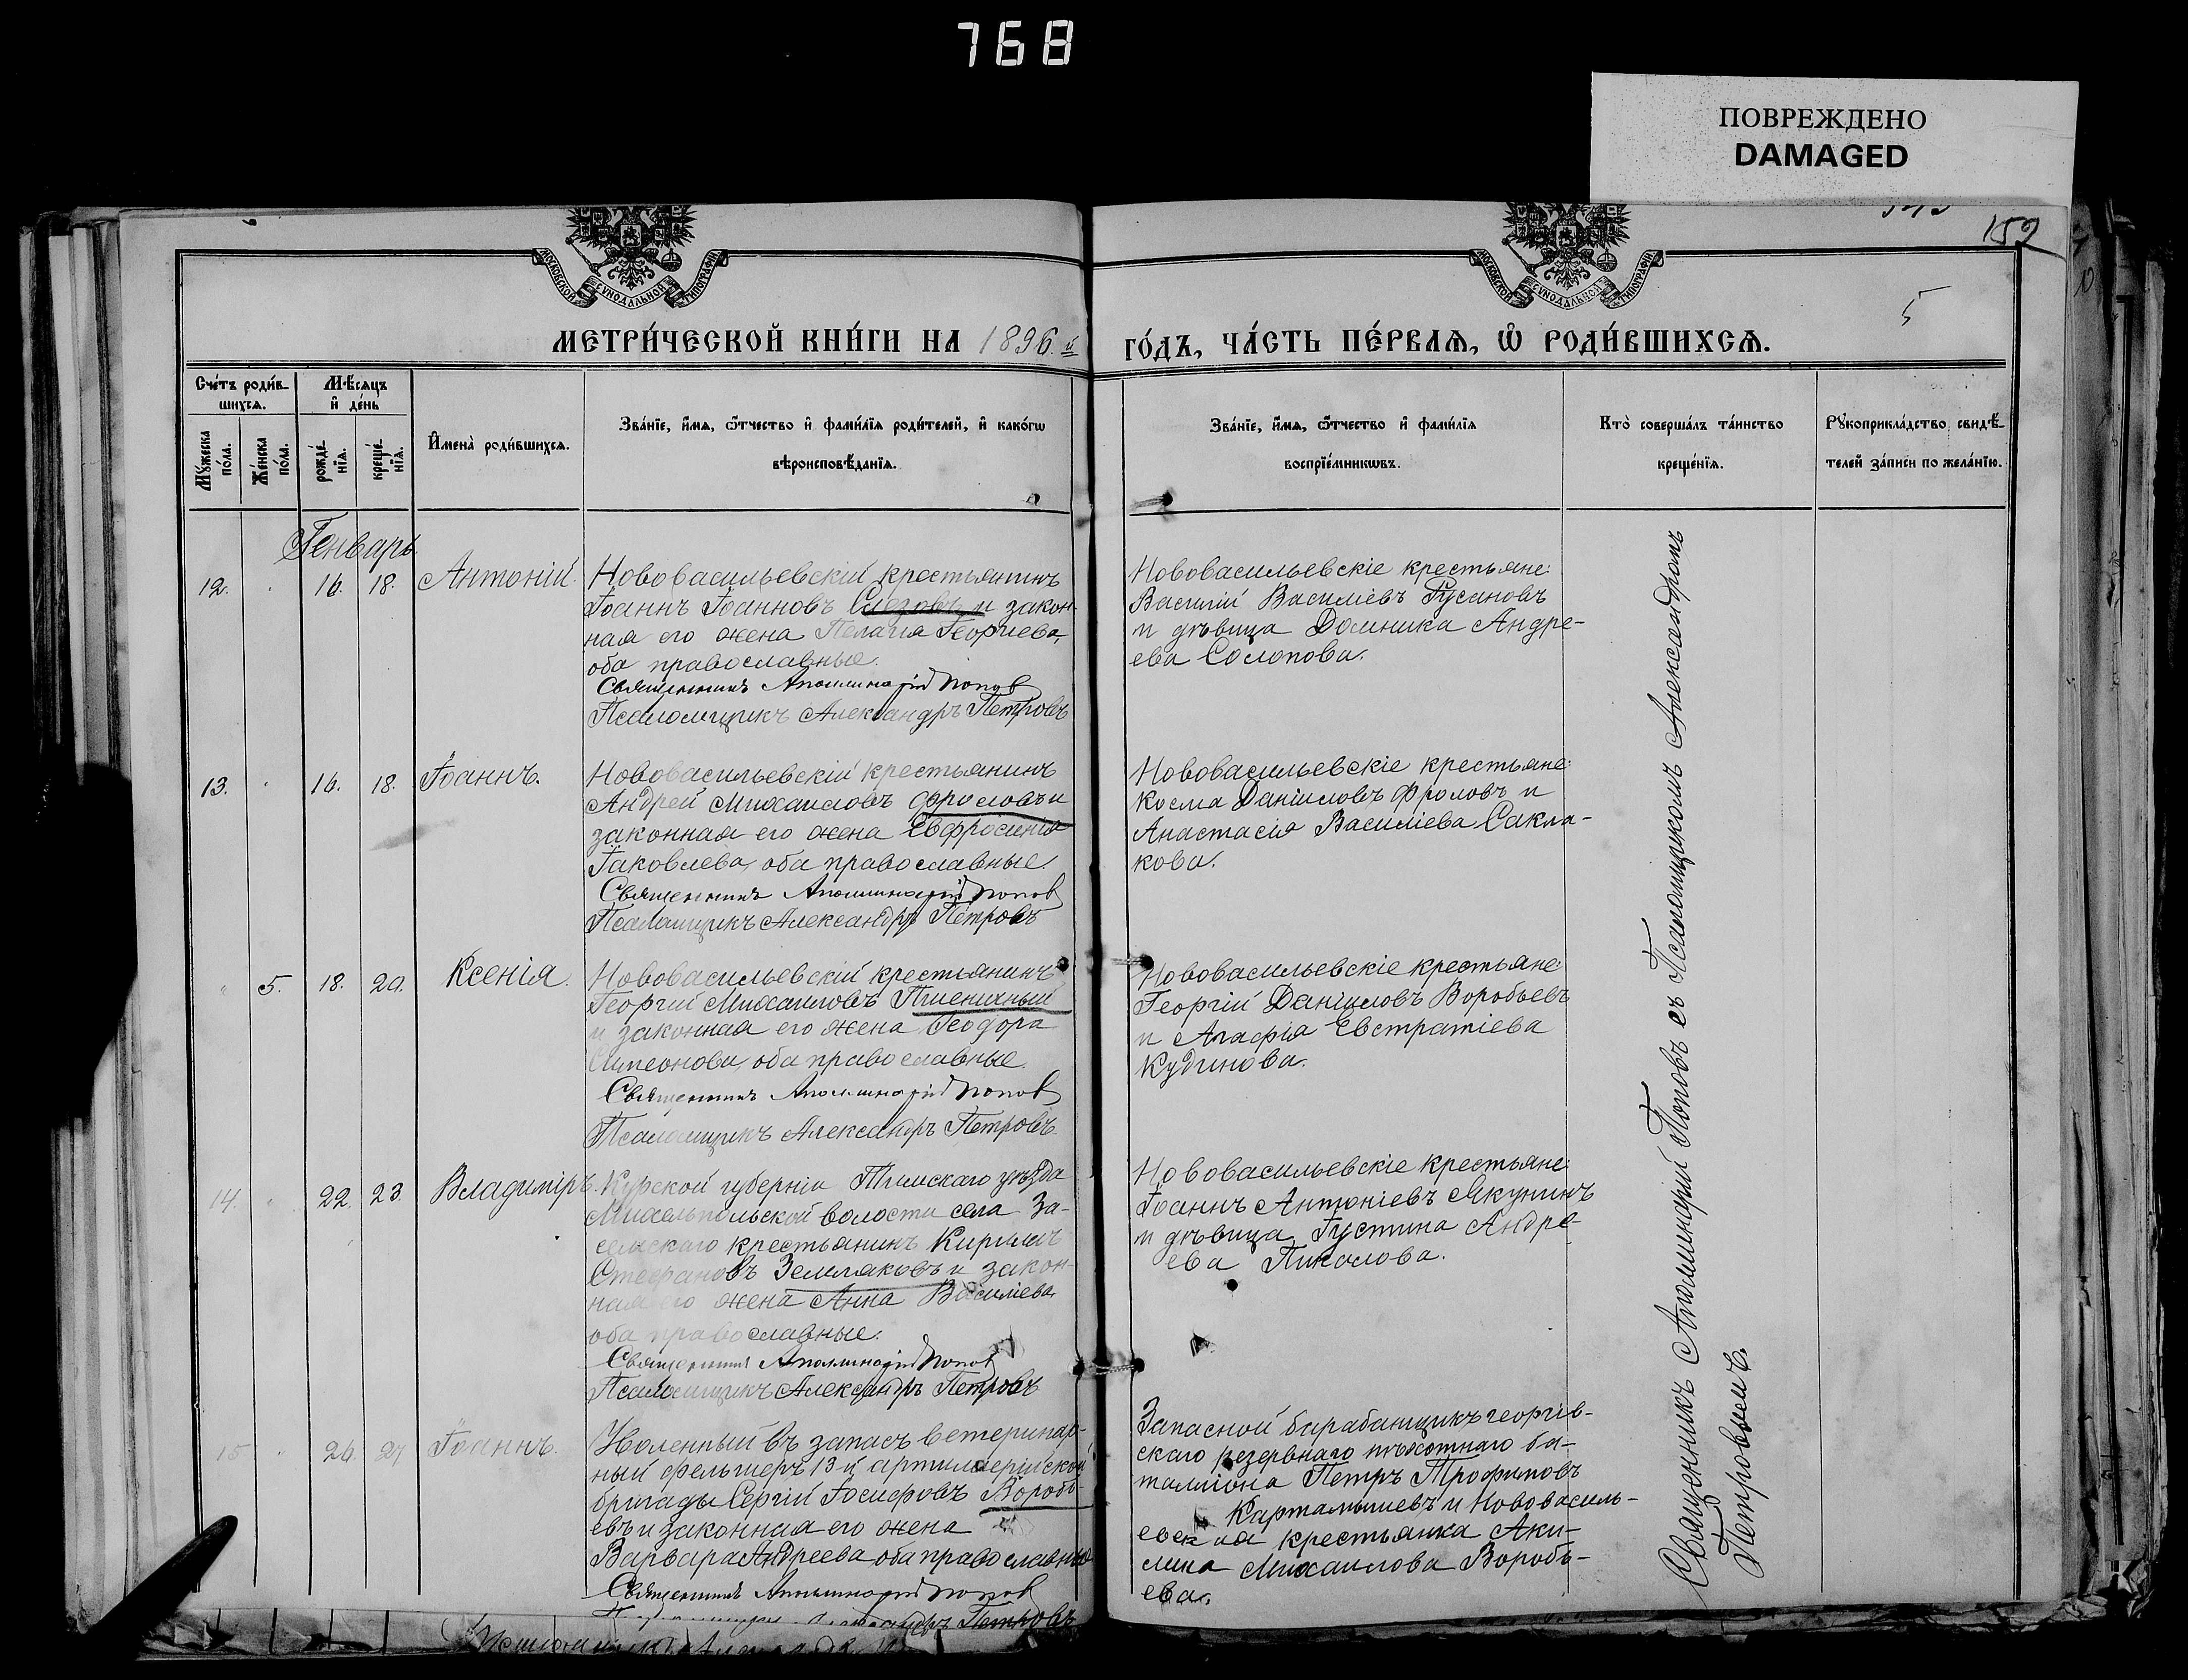 768
ПОВРЕЖДЕНО
DAMAGED
159
5
МОСКОВСКОЙ СѴНОДАЛЬНОЙ ТИПОГРАФІИ
МОСКОВСКОЙ СѴНОДАЛЬНОЙ ТИПОГРАФІИ
МЕТРИ́ЧЕСКОЙ КНИ́ГИ НА 1896.й
ГО́ДЪ, ЧА́СТЬ ПЕ́РВАѦ, Ѡ҆ РОДИ́ВШИХСѦ.
Сче́тъ роди́в-
шихсѧ.
Мѣ́сѧцъ
и҆ де́нь
Мꙋ́жеска
по́ла.
Же́нска
по́ла.
рожде́-
нїѧ.
креще́-
нїѧ.
И҆мена̀ роди́вшихсѧ.
Зва́нїе, и҆́мѧ, ѻ҆́тчество и҆ фами́лїѧ роди́телей, и҆ како́гѡ
вѣроисповѣ́данїѧ.
Зва́нїе, и҆́мѧ, ѻ҆́тчество и҆ фами́лїѧ
воспрїе́мникѡвъ.
Кто̀ соверша́лъ та́инство
креще́нїѧ.
Рꙋкоприкла́дство свидѣ́-
телей за́писи по жела́нїю.
Генварь
12. " 16. 18. Антоній.
Нововасильевскій крестьянинъ
Іоаннъ Іоанновъ и закон-
ная его жена Пелагія Георгіева,
оба православные.
Священникъ Аполлинарій Попов
Псаломщикъ Александръ Петровъ
Нововасильевскіе крестьяне:
Василій Василіевъ Русановъ
и дѣвица Домника Андре-
ева Солопова.
13. " 16. 18. Іоаннъ.
Нововасильевскій крестьянинъ
Андрей Михаиловъ Фроловъ и
законная его жена Евфросинія
Іаковлева, оба православные.
Священникъ Аполлинарій Попов
Псаломщикъ Александръ Петровъ
Нововасильевскіе крестьяне:
Косма Даніиловъ Фроловъ и
Анастасія Василіева Сакла-
кова.
" 5. 18. 20. Ксенія.
Нововасильевскій крестьянинъ
Георгій Михаиловъ Пшеничный
и законная его жена Феодора
Симеонова, оба православные.
Священникъ Аполлинарій Попов
Псаломщикъ Александръ Петровъ.
Нововасильевскіе крестьяне:
Георгій Даніиловъ Воробьевъ
и Агафія Евстратіева
Кудинова.
14. " 22. 23. Владиміръ.
Курской губерніи Тимскаго уѣзда
волости села За-
крестьянинъ Кириллъ
Стефановъ Земляковъ и закон-
ная его жена Анна Василіева
оба православные.
Священникъ Аполлинарій Попов
Псаломщикъ Александръ Петровъ
Нововасильевскіе крестьяне:
Іоаннъ Антоніевъ Якунинъ
и дѣвица Іустина Андре-
ева Пикалова.
15 " 26. 27 Іоаннъ.
Уволенный въ запасъ ветеринар-
ный фельшеръ 13-й артиллерійской
бригады Сергій Іосифовъ Воробь-
евъ и законная его жена
Варвара Андреева оба православные
Священникъ Аполлинарій Попов
Александръ Петровъ
Запасной барабанщикъ георгіев-
скаго резервнаго пѣхотнаго ба-
таліона Петръ Трофимовъ
Картамышевъ и Нововасиль-
евская крестьянка Аки-
лина Михаилова Воробь-
ева.
Священникъ Аполлинарій Поповъ съ Псаломщикомъ Александромъ
Петровымъ.